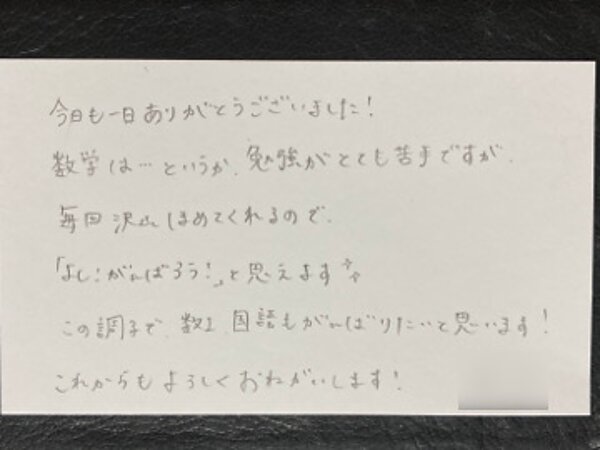 今日も一日ありがとうございました！
数学は…というか、勉強がとても苦手ですが、
毎回沢山ほめてくれるので、
「よし！がんばろう！」と思えます
この調子で、数I、国語もがんばりたいと思います！
これからもよろしくおねがいします！